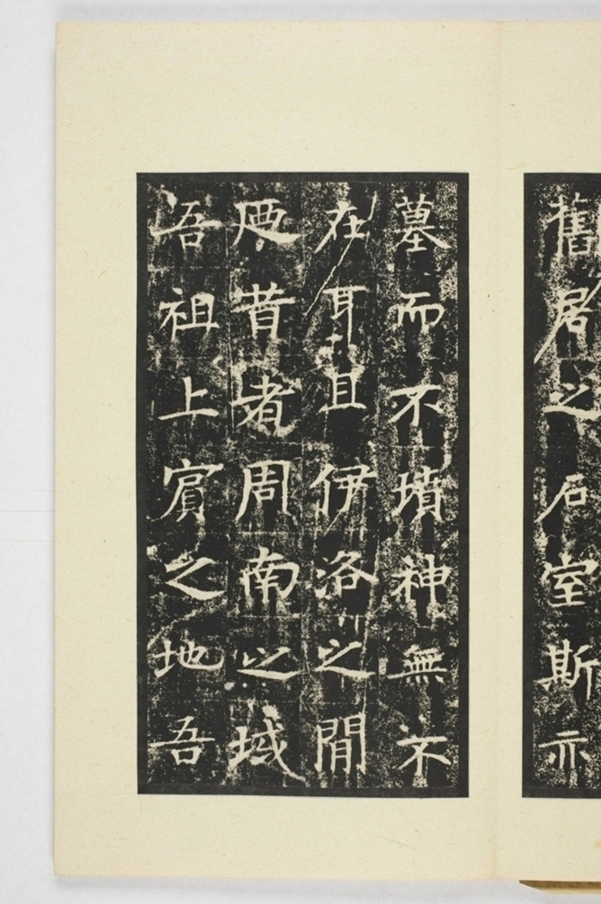 舊居之石室斯亦
墓而不墳神無不
在耳且伊洛之間
迺昔者周南之域
吾祖上賓之地吾